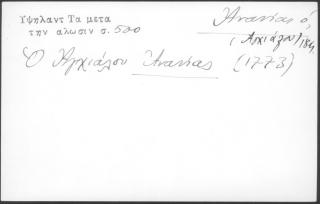 Υψηλαντ Τα μετα
την αλωσιν σ. 500
Ανανίας ὁ,
(Αγχιάλου) 184
Ὁ Αγχιάλου Ανανίας (1773)